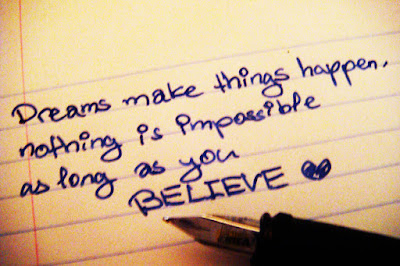 Dreams make things happen.
nothing is impossible
as long as you
BELIEVE ♥